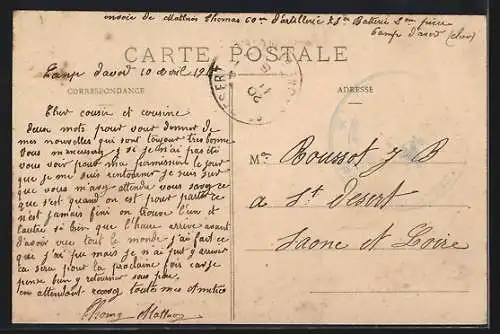 envoie de Mathias Thomas 60em d'artillerie 21e Baterie 2em pièce
Camp d'avod (cher)
CARTE POSTALE
Camp d'avod 10 avril 191
CORRESPONDANCE
ADRESSE
Cher cousin et cousine
Deux mots pour vour donner de
mes nouvelles qui sont toujour tres bonne
Vous m'excuserez si je n'ai pas été
vous voir pour ma permission le jour
que je me suis rentourner je suis sur
que vous m'avez attendu vous savez ce
que s'est quand on est pour partir ce
n'est jamais fini on trouve l'un et
l'autre si bien que l'heure arrive avant
d'avoir vue tout le monde j'ai fait ce
que j'ai pu mais je n'ai put y arriver
ca sera pour la prochaine fois car je
pense bien y retourner sous peu.
en attendant recevez toutes mes amitiées
Thomas Mathias
Mr Roussot J B
a St Desert
Saone et Loire